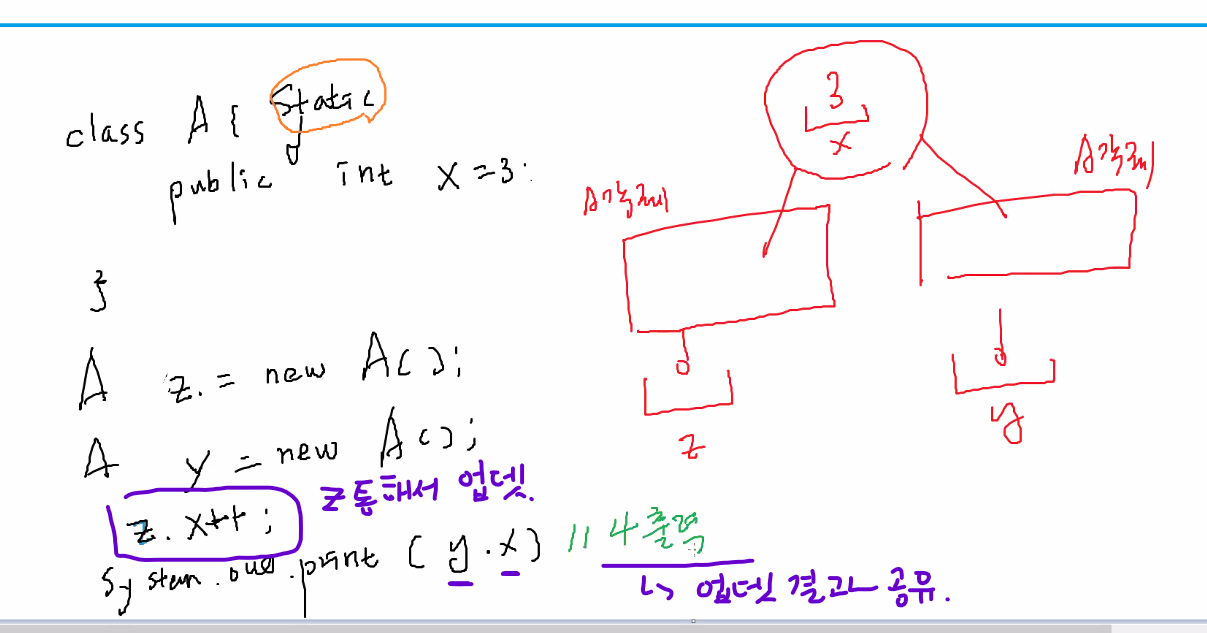 class A{ static
public int x = 3;
}
A z. = new A();
A y = new A();
z통해서 업뎃.
z.x++;
System.out.print(y.x) //4출력
↳ 업뎃 결과 공유.
3
x
A객체
A객체
z
y